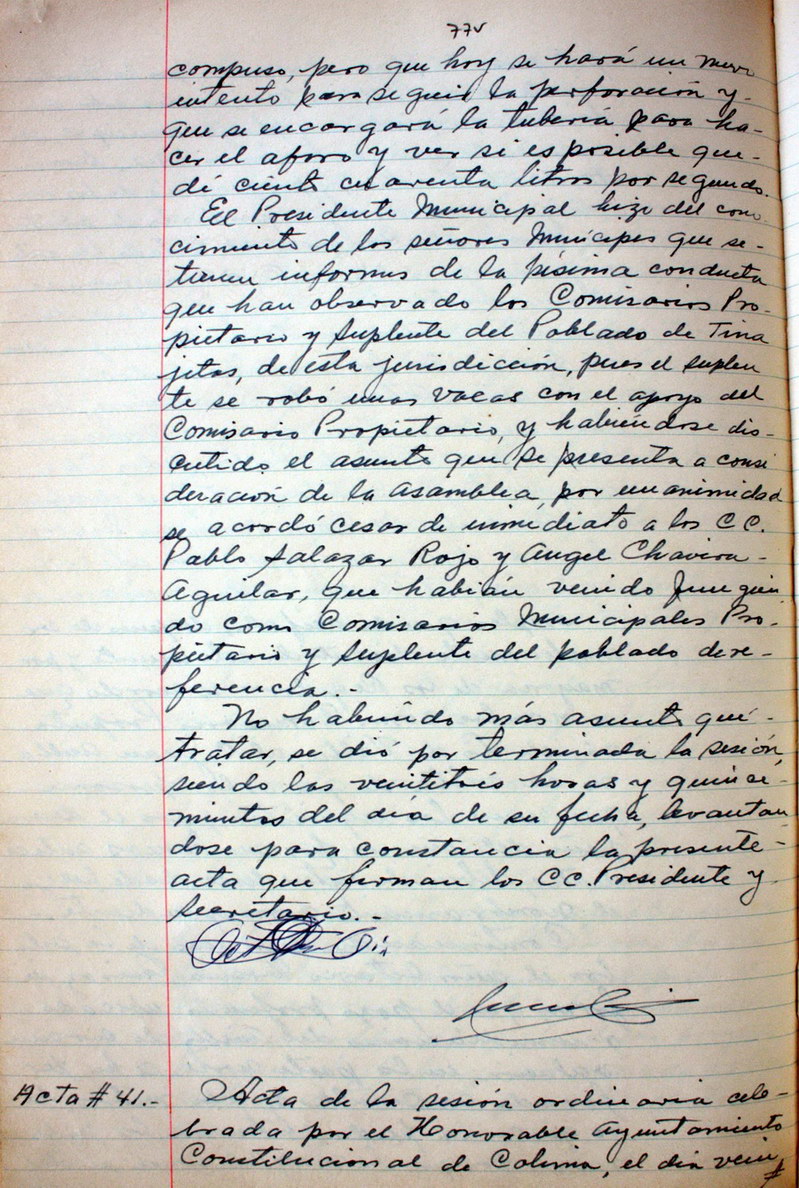 77v
compuso, pero que hoy se hará un nuevo
intento para seguir la perforación y-
que se encargará la tubería para ha-
cer el aforo y ver si es posible que-
dé ciento cuarenta litros por segundo.
El Presidente Municipal hizo del cono
cimiento de los señores Munícipes que se-
tienen informes de la pésima conducta
que han observado los Comisarios Pro-
pietario y Suplente del Poblado de Tina
jitas, de esta jurisdicción, pues el suplen
te se robó unas vacas con el apoyo del
Comisario Propietario, y habiéndose dis-
cutido el asunto que se presenta a consi
deración de la asamblea, por unanimidad
se acordó cesar de inmediato a los CC.
Pablo Salazar Rojo y Angel Chavira-
Aguilar, que habían venido fungien
do como Comisarios Municipales Pro-
pietario y Suplente del poblado de re-
ferencia.-
No habiendo más asunto que-
tratar, se dió por terminada la sesión,
siendo las veintitrés horas y quince-
minutos del día de su fecha, levantan
dose para constancia la presente-
acta que firman los CC. Presidente y
Secretario.-
Acta # 41.- Acta de la sesión ordinaria cele-
brada por el Honorable Ayuntamiento
Constitucional de Colima, el día vein
#